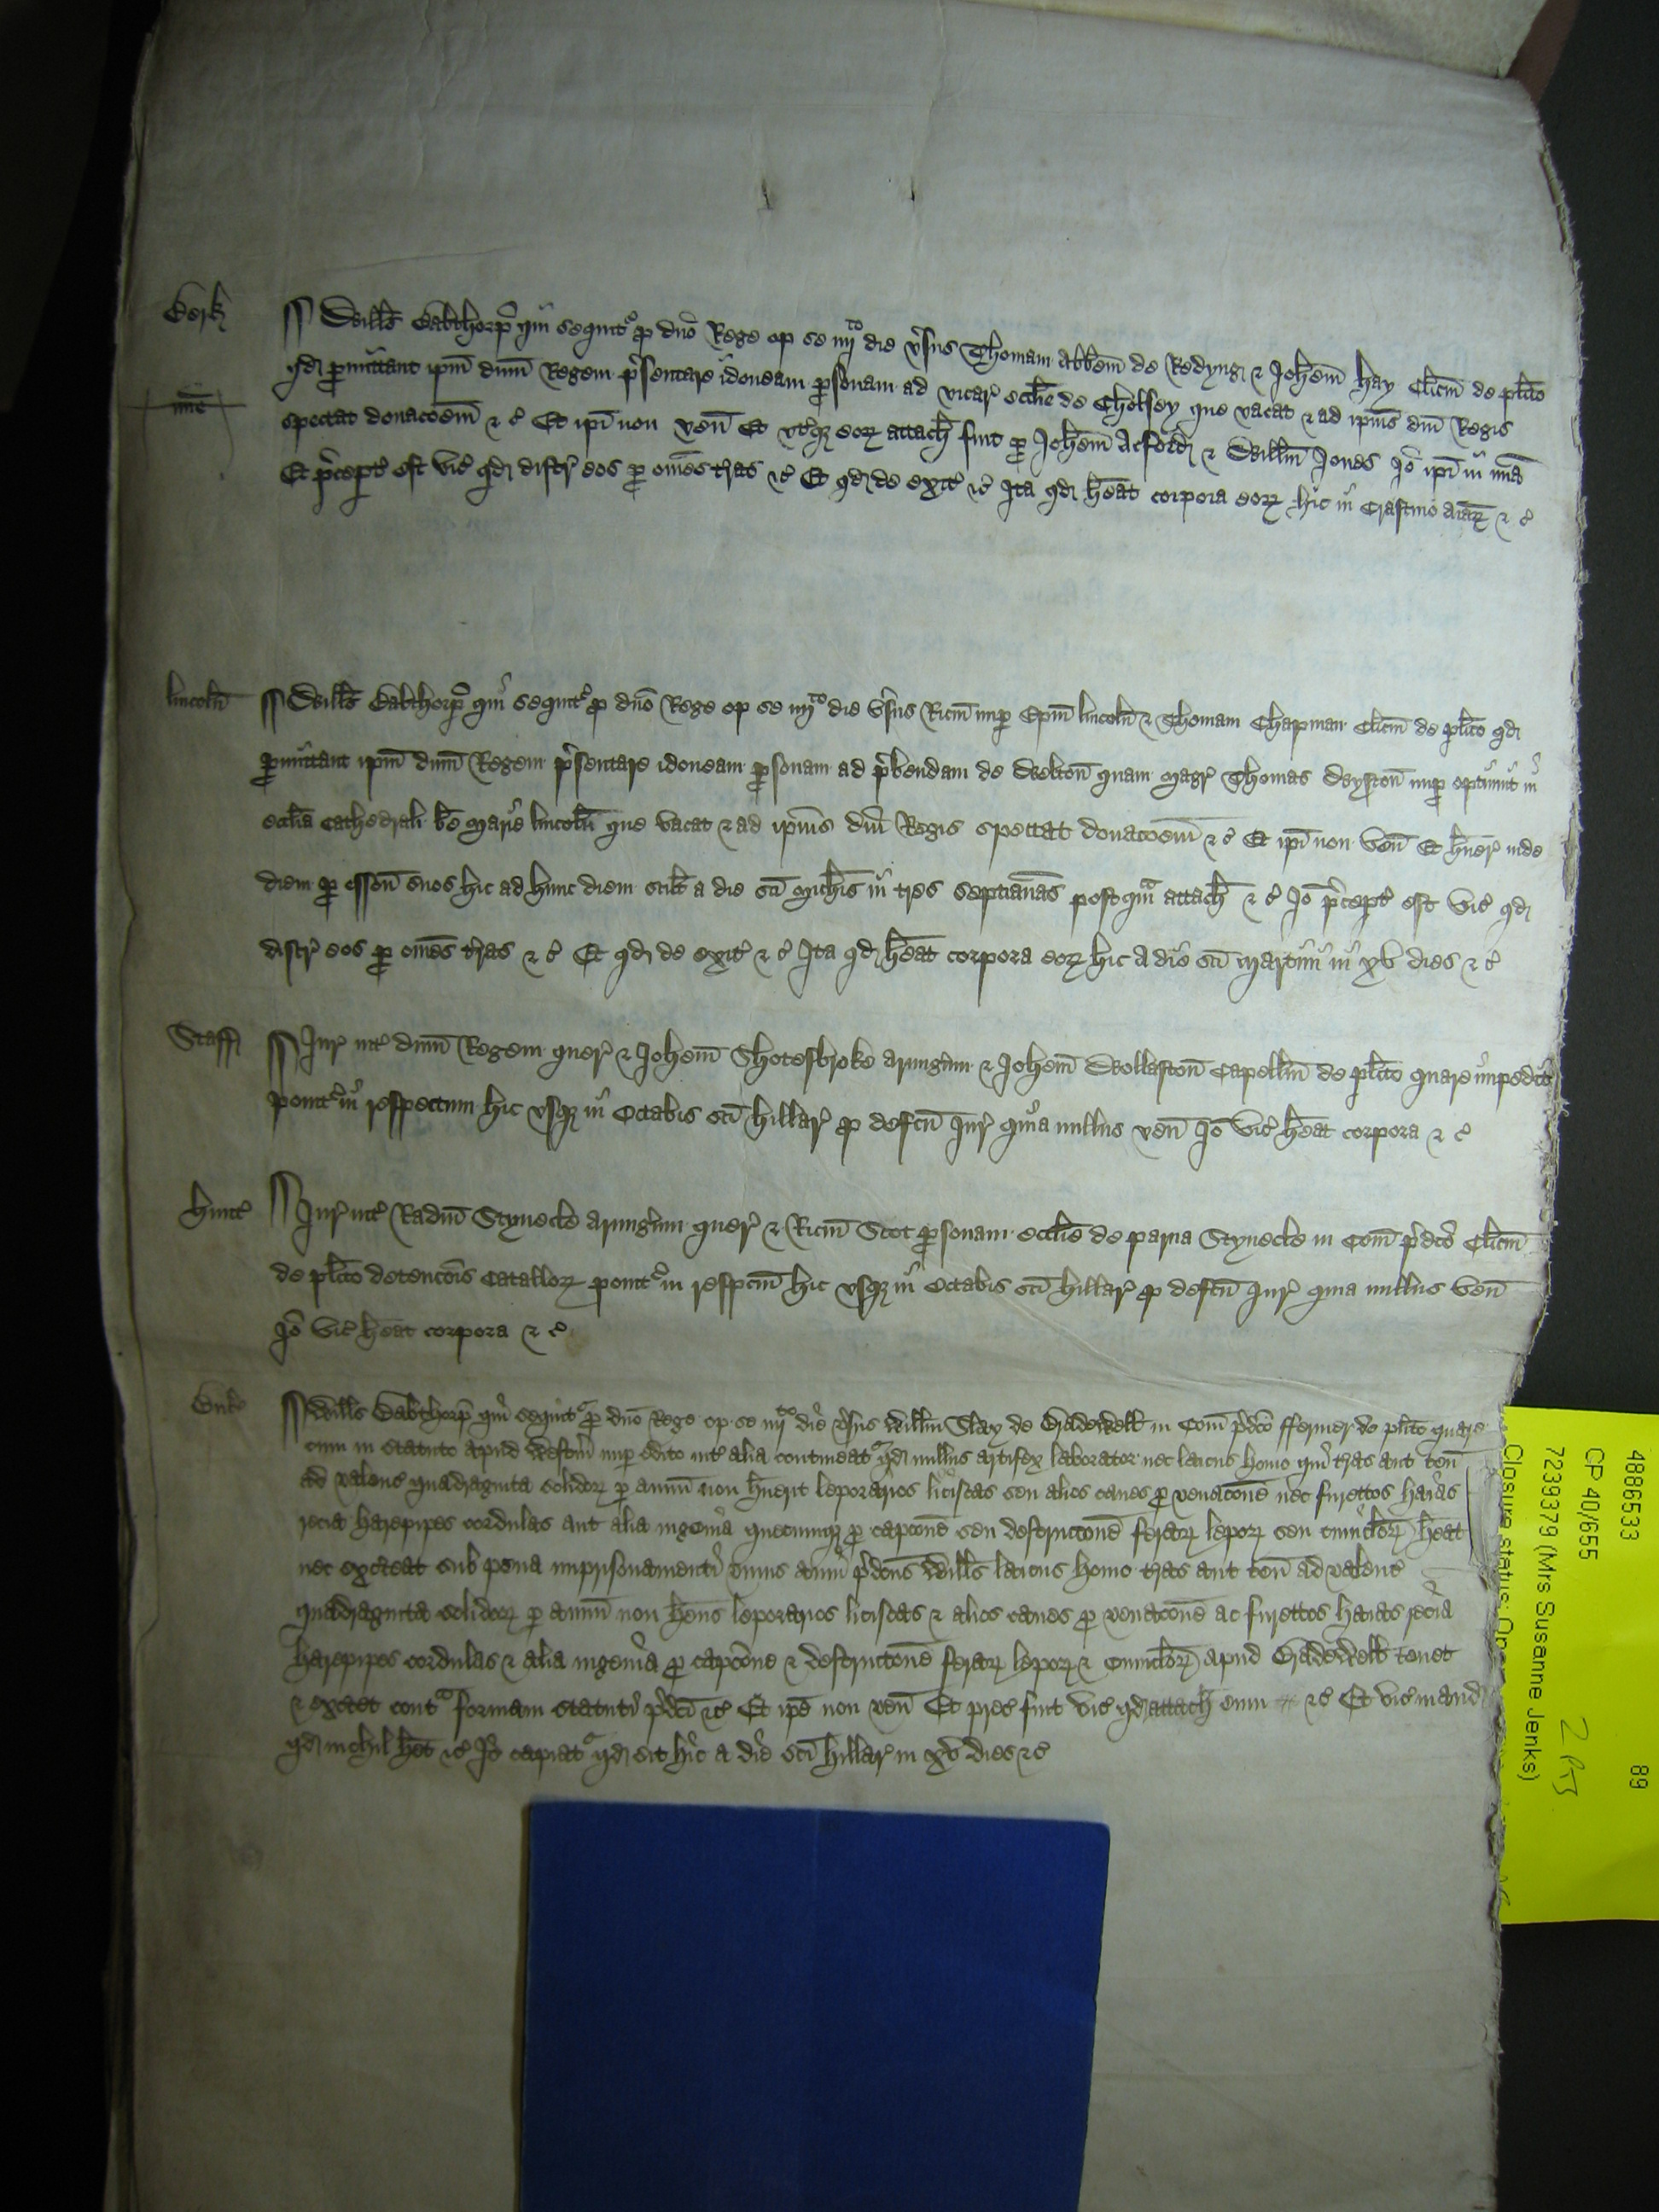 Berk
Wills Babthorp qui sequit' p dno Rege op se iiijto die vsus Thomam Abbem de Redyng & Johem Hay Clicm de plito
qd pmittant ipm dnm Regem psentare idoneam psonam ad vicar ecclie de Cholsey que vacat & ad ipius dni Regis
mie
spectat donacoem &c Et ipi non ven Et utqz eoz attach fuit p Johem & Willm Jones Io ipi in mia
Et precept est vic qd distr eos p omes tras &c Et qd de exit &c Ita qd heat corpora eoz hic in Crastino Aiaz &c
lincoln
Wills Babthorp qui sequit' p dno Rege op se iiijto die vsus Ricm nup Epm lincoln & Thomam Chapman Clicm de plito qd
pmittant ipm dnm Regem psentare idoneam psonam ad pbendam de Welton quam Magr Thomas nup optinuit in
ecclia Cathedrali be Marie lincoln que vacat & ad ipius dni Regis spectat donacoem &c Et ipi non ven Et huer inde
diem p esson suos hic ad hunc diem scilt a die sci Michis in tres septianas postqm attach &c Io precept est vic qd
distr eos p omes tras &c Et qd de exit &c Ita qd heat corpora eoz hic A die sci Martini in xv dies &c
Staff
Jur int dnm Regem quer & Johem Shotesbroke Armigum & Johem Wollaston Capellm de plito quare impedit
ponit' in respectum hic usqz in Octabis sci Hillar p defcu Jur quia nullus ven Io vic heat corpora &c
Hunt
Jur int Radum Stynecle Armigum quer & Ricm Scot psonam ecclie de parva Stynecle in Com pdco Clicm
de plito detencois Catalloz ponit' in respcm hic usqz in Octabis sci Hillar p defcu Jur quia nullus ven
Io vic heat corpora &c
Buk
Wills Babthorp qui sequit' p dno Rege op se iiijto die vsus Willm Slay de in Com pdco ffermer de plito quare
cum in statuto apud Westm nup edito int alia contineat' qd nullus artifex laborator nec laicus homo qui tras aut ten
ad valenc quadraginta solidoz p annu non huerit leporarios liciscas seu alios canes p venacone nec furettos haias
recia harepipes cordulas aut alia ingenia quecumqz p capcone seu destruccone feraz lepoz seu cunicloz heat
nec exceat sub pena imprisonamenti unius anni pdcus Wills laicus homo tras aut ten ad valenc
quadraginta solidoz p annu non hens leporarios liciscas & alios canes p venacone ac furettos haias recia
harepipes cordulas & alia ingenia p capcone & destruccone feraz lepoz & cunicloz apud tenet
& excet cont formam statuti pdci &c Et ipe non ven Et prec fuit vic qd attach eum &c Et vic mand
qd nichil het &c Io capiat' qd sit hic a die sci Hillar in xv dies &c
4886533 89
CP 40/655
7239379 (Mrs Susanne Jenks)
Closure status: Op